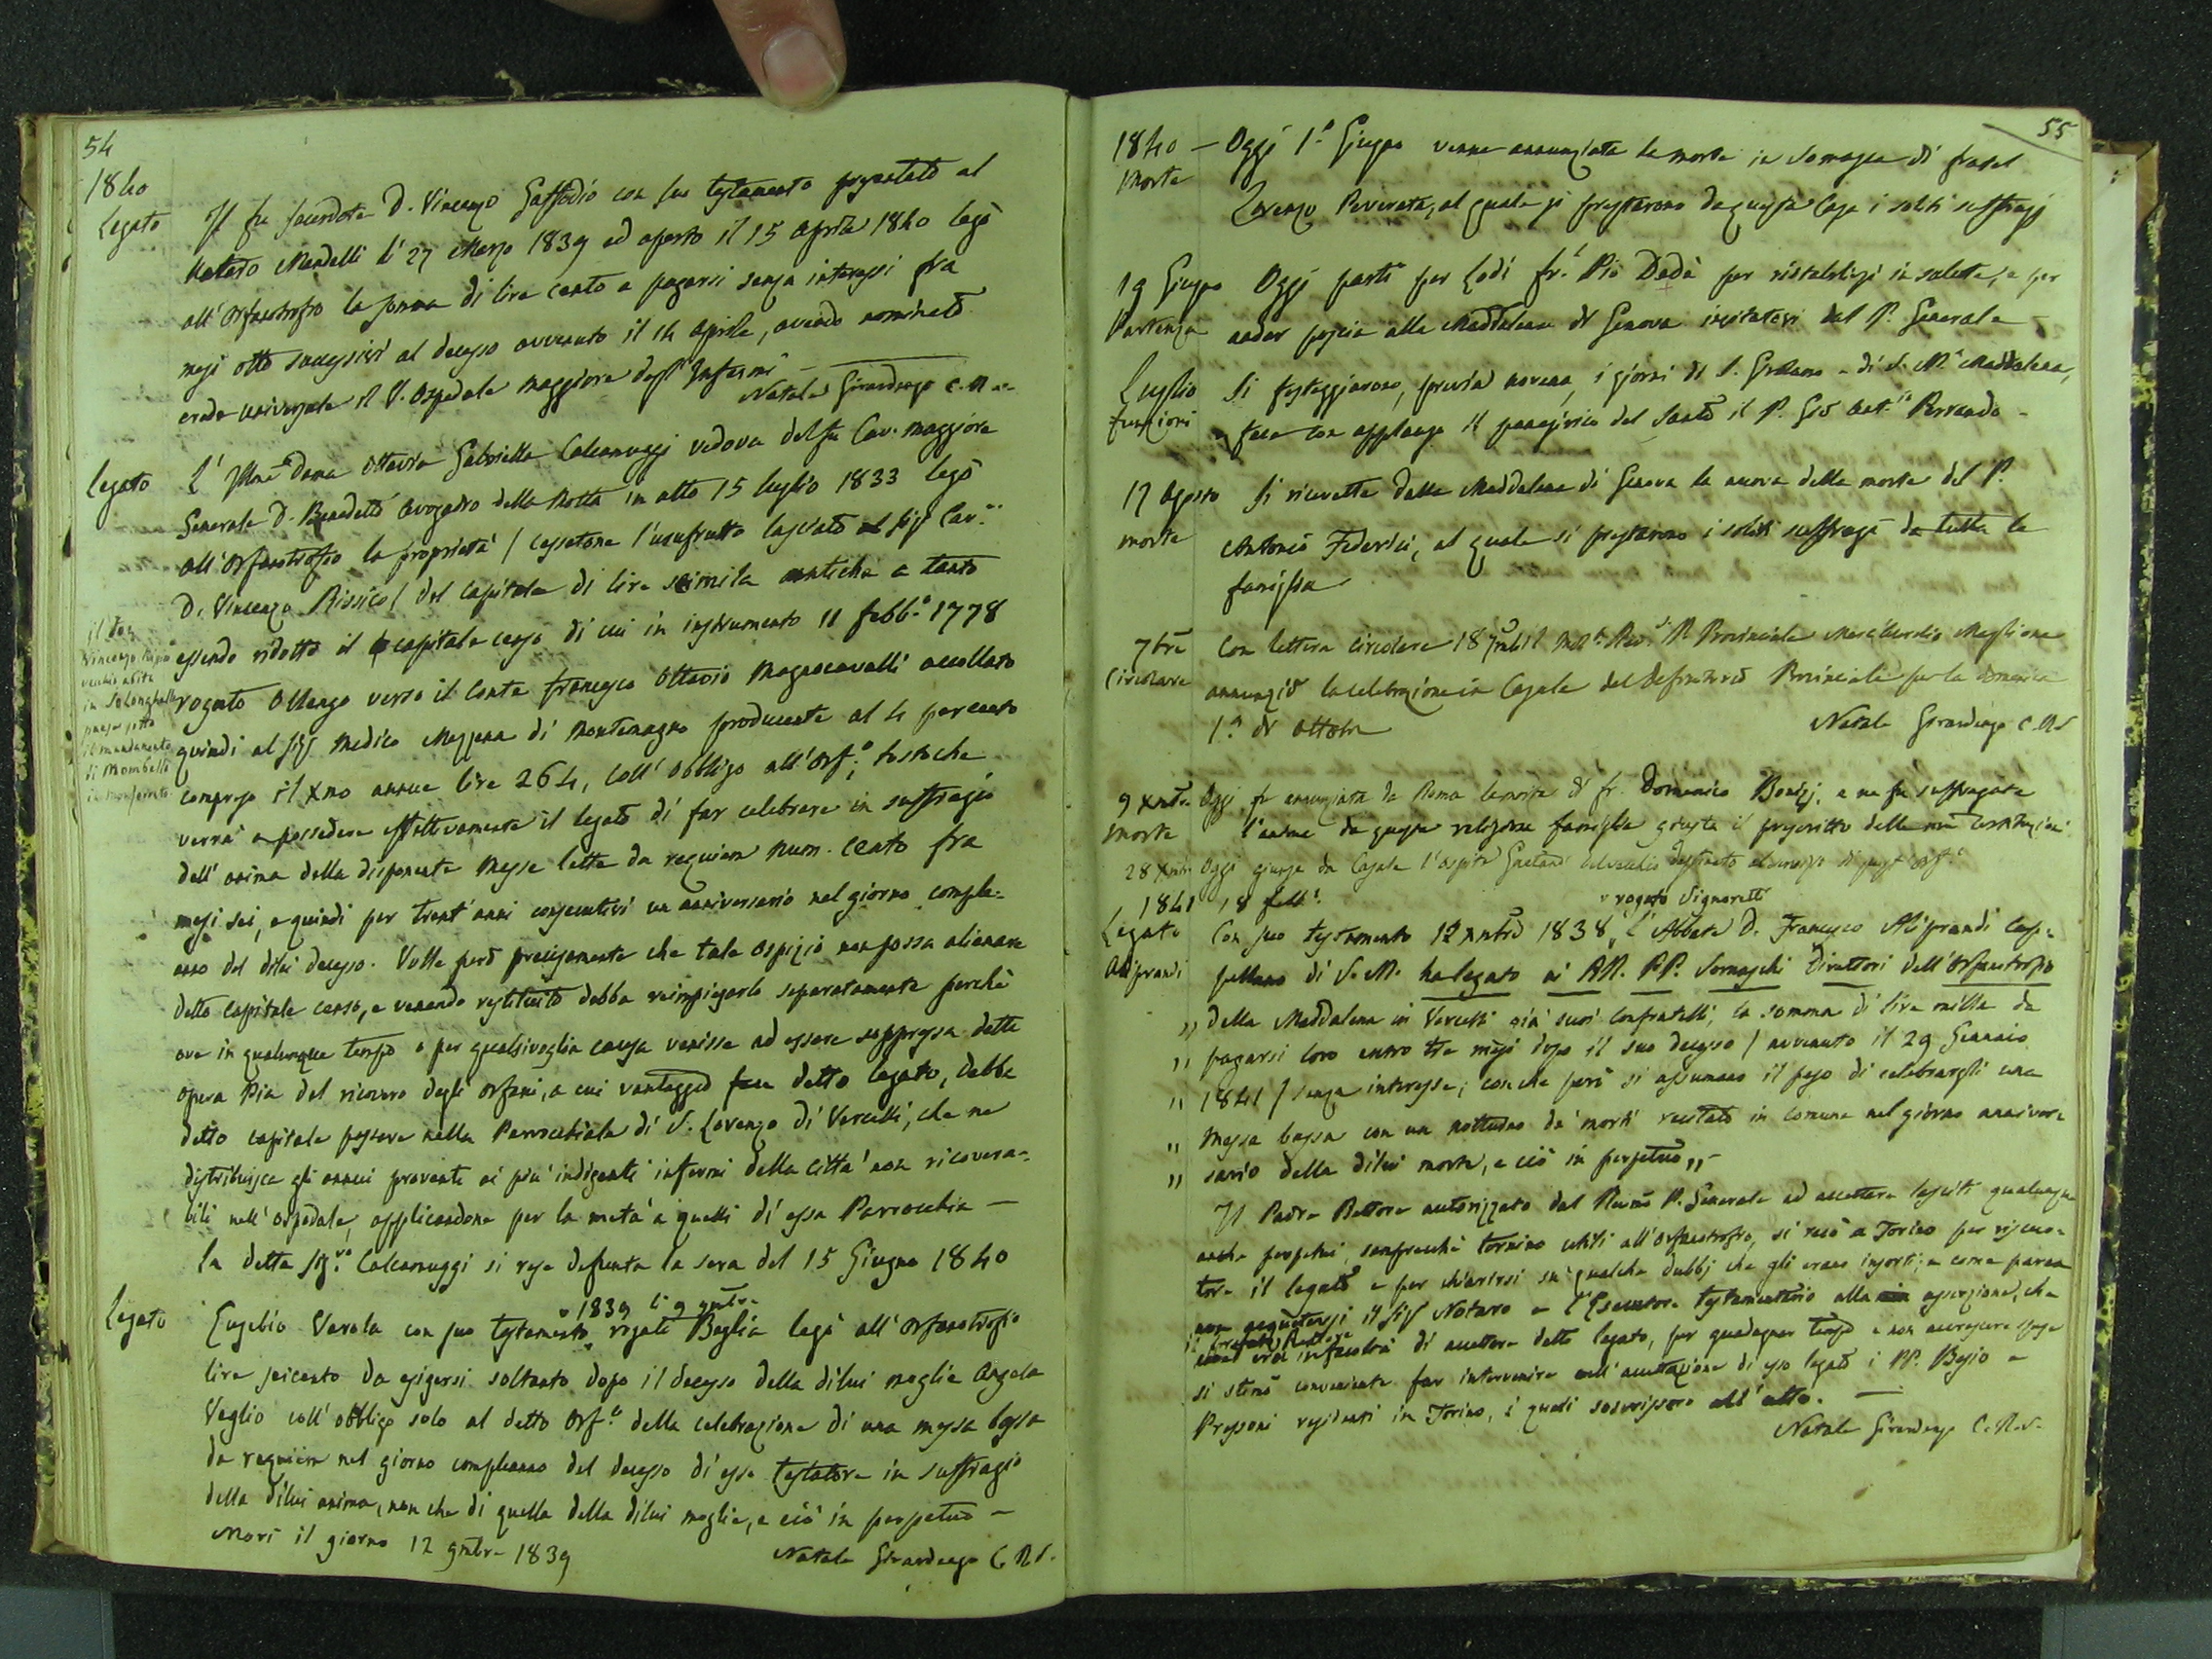 54
1840
Legato Il fu sacerdote D. Vincenzo Gaffodio con suo testamento presentato al
Notaro Mandelli li 27 Marzo 1839 ed aperto il 15 Aprile 1840 legò
all'Orfanotrofio la somma di lire cento a pagarsi senza interessi fra
mesi otto successivi al decesso avvenuto il 14 Aprile, avendo nominato
erede universale il V. Ospedale maggiore degl'Infermi —
Natale Girardengo C.R.S.
Legato L'Ill.ma Dama Ottavia Gabriella Calcamuggi vedova del fu Cav. maggiore
Generale D. Benedetto Avogadro della Motta in atto 15 luglio 1833 legò
all'Orfanotrofio la proprietà / cessatone l'usufrutto lasciato al Sig.r Cav.
D. Vincenzo / del Capitale di lire seimila antiche a tanto
essendo ridotto il capitale censo di cui in instrumento 11 febb.o 1778
rogato Ollengo verso il Conte Francesco Ottavio Magnocavalli accollato
quindi al Sig.r Medico Mezzena di Montemagno producente al 4 per cento
compreso il Xmo annue lire 264, coll'obbligo all'Orf.o, tosto che
verrà a possedere effettivamente il legato di far celebrare in suffragio
dell'anima della disponente Messe lette da requiem num. cento fra
mesi sei, e quindi per trent'anni consecutivi un anniversario nel giorno comple-
anno del dilei decesso. Volle però precisamente che tale ospizio non possa alienare
detto capitale censo, e venendo restituito debba reimpiegarlo separatamente perchè
ove in qualunque tempo o per qualsivoglia causa venisse ad essere soppressa detta
opera Pia del ricovero degli orfani, a cui vantaggio fece detto legato, debba
detto capitale passare nella Parrocchiale di S. Lorenzo di Vercelli, che ne
distribuisca gli annui proventi ai più indigenti infermi della città non ricovera-
bili nell'ospedale, applicandone per la metà a quelli di essa Parrocchia —
la detta Sig.ra Calcamuggi si rese defunta la sera del 15 Giugno 1840
il Sig.
Vincenzo
vecchio abita
in Solonghello
paese sotto
il mandamento
di Mombello
in monferrato
1839 li 9 9mbre
Legato Eusebio Varola con suo testamento rogato Baglia legò all'Orfanotrofio
lire seicento da esigersi soltanto dopo il decesso della dilui moglie Angela
Veglio coll'obbligo solo al detto Orf.o della celebrazione di una messa bassa
da requiem nel giorno compleanno del decesso di esso testatore in suffragio
della dilui anima, non che di quella della dilui moglie, e ciò in perpetuo —
Morì il giorno 12 9mbre 1839 Natale Girardengo C.R.S.
55
1840 — Oggi 1.o Giugno venne annunziata la morte in Somasca di fratel
Morte Lorenzo Poverata, al quale si prestarono da questa Casa i soliti suffragj
19 Giugno Oggi partì per Lodi fr. Pio Dadà per ristabilirsi in salute, e per
Partenza andar poscia alla Maddalena di Genova invitatovi dal P. Generale —
Luglio Si festeggiarono, previa novena, i giorni di S. Girolamo e di S. M.a Maddalena,
funzioni e fece con applauso il panegirico del Santo il P. Gio Bat.ta Perrando —
17 Agosto Si ricevette dalla Maddalena di Genova la nuova della morte del P.
morte Antonio Federici, al quale si prestarono i soliti suffragi da tutta la
famiglia
7bre Con lettera circolare 18 7mbre il Molto Rev.do P. Provinciale Marc'Aurelio Maglione
Circolare annunziò la celebrazione in Casale del Definitorio Provinciale per la domenica
1.a di Ottobre Natale Girardengo C.R.S
9 Xmbre Oggi fu annunziata da Roma la morte di fr. Domenico e ne fu suffragata
Morte l'anima da questa religiosa famiglia giusta il prescritto delle nre Costituzioni
28 Xmbre Oggi giunse da Casale l'ospite Gaetano Delvecchio destinato al servizio di quest'Orf.o
1841 18 febb.o
rogato Signoretti
Legato Con suo testamento 12 Xmbre 1838, l'Abbate D. Francesco Aliprandi Cap-
Aliprandi pellano di S. M. ha legato ai RR. PP. Somaschi Direttori dell'Orfanotrofio
„ della Maddalena in Vercelli già suoi Confratelli, la somma di lire mille da
„ pagarsi loro entro tre mesi dopo il suo decesso / avvenuto il 29 Gennaio
„ 1841 / senza interesse; con che però si assumano il peso di celebrargli una
„ Messa bassa con un notturno da' morti recitato in comune nel giorno anniver-
„ sario della dilui morte, e ciò in perpetuo „ —
Il Padre Rettore autorizzato dal Rev.mo P. Generale ad accettare lasciti qualunque
anche perpetui, semprechè tornino utili all'Orfanotrofio, si recò a Torino per riscuo-
tere il legato e per chiarirsi su qualche dubbj che gli erano insorti; e come parea
non acquetarsi il Sig.r Notaro e l'Esecutore testamentario alla asserzione, che
il prefato Rettore
era in facoltà di accettare detto legato, per guadagnar tempo e non accrescere spese
si stimò conveniente far intervenire nell'accettazione di esso legato i PP. Besio e
Pressoni residenti in Torino, i quali soscrissero all'atto. —
Natale Girardengo C.R.S.